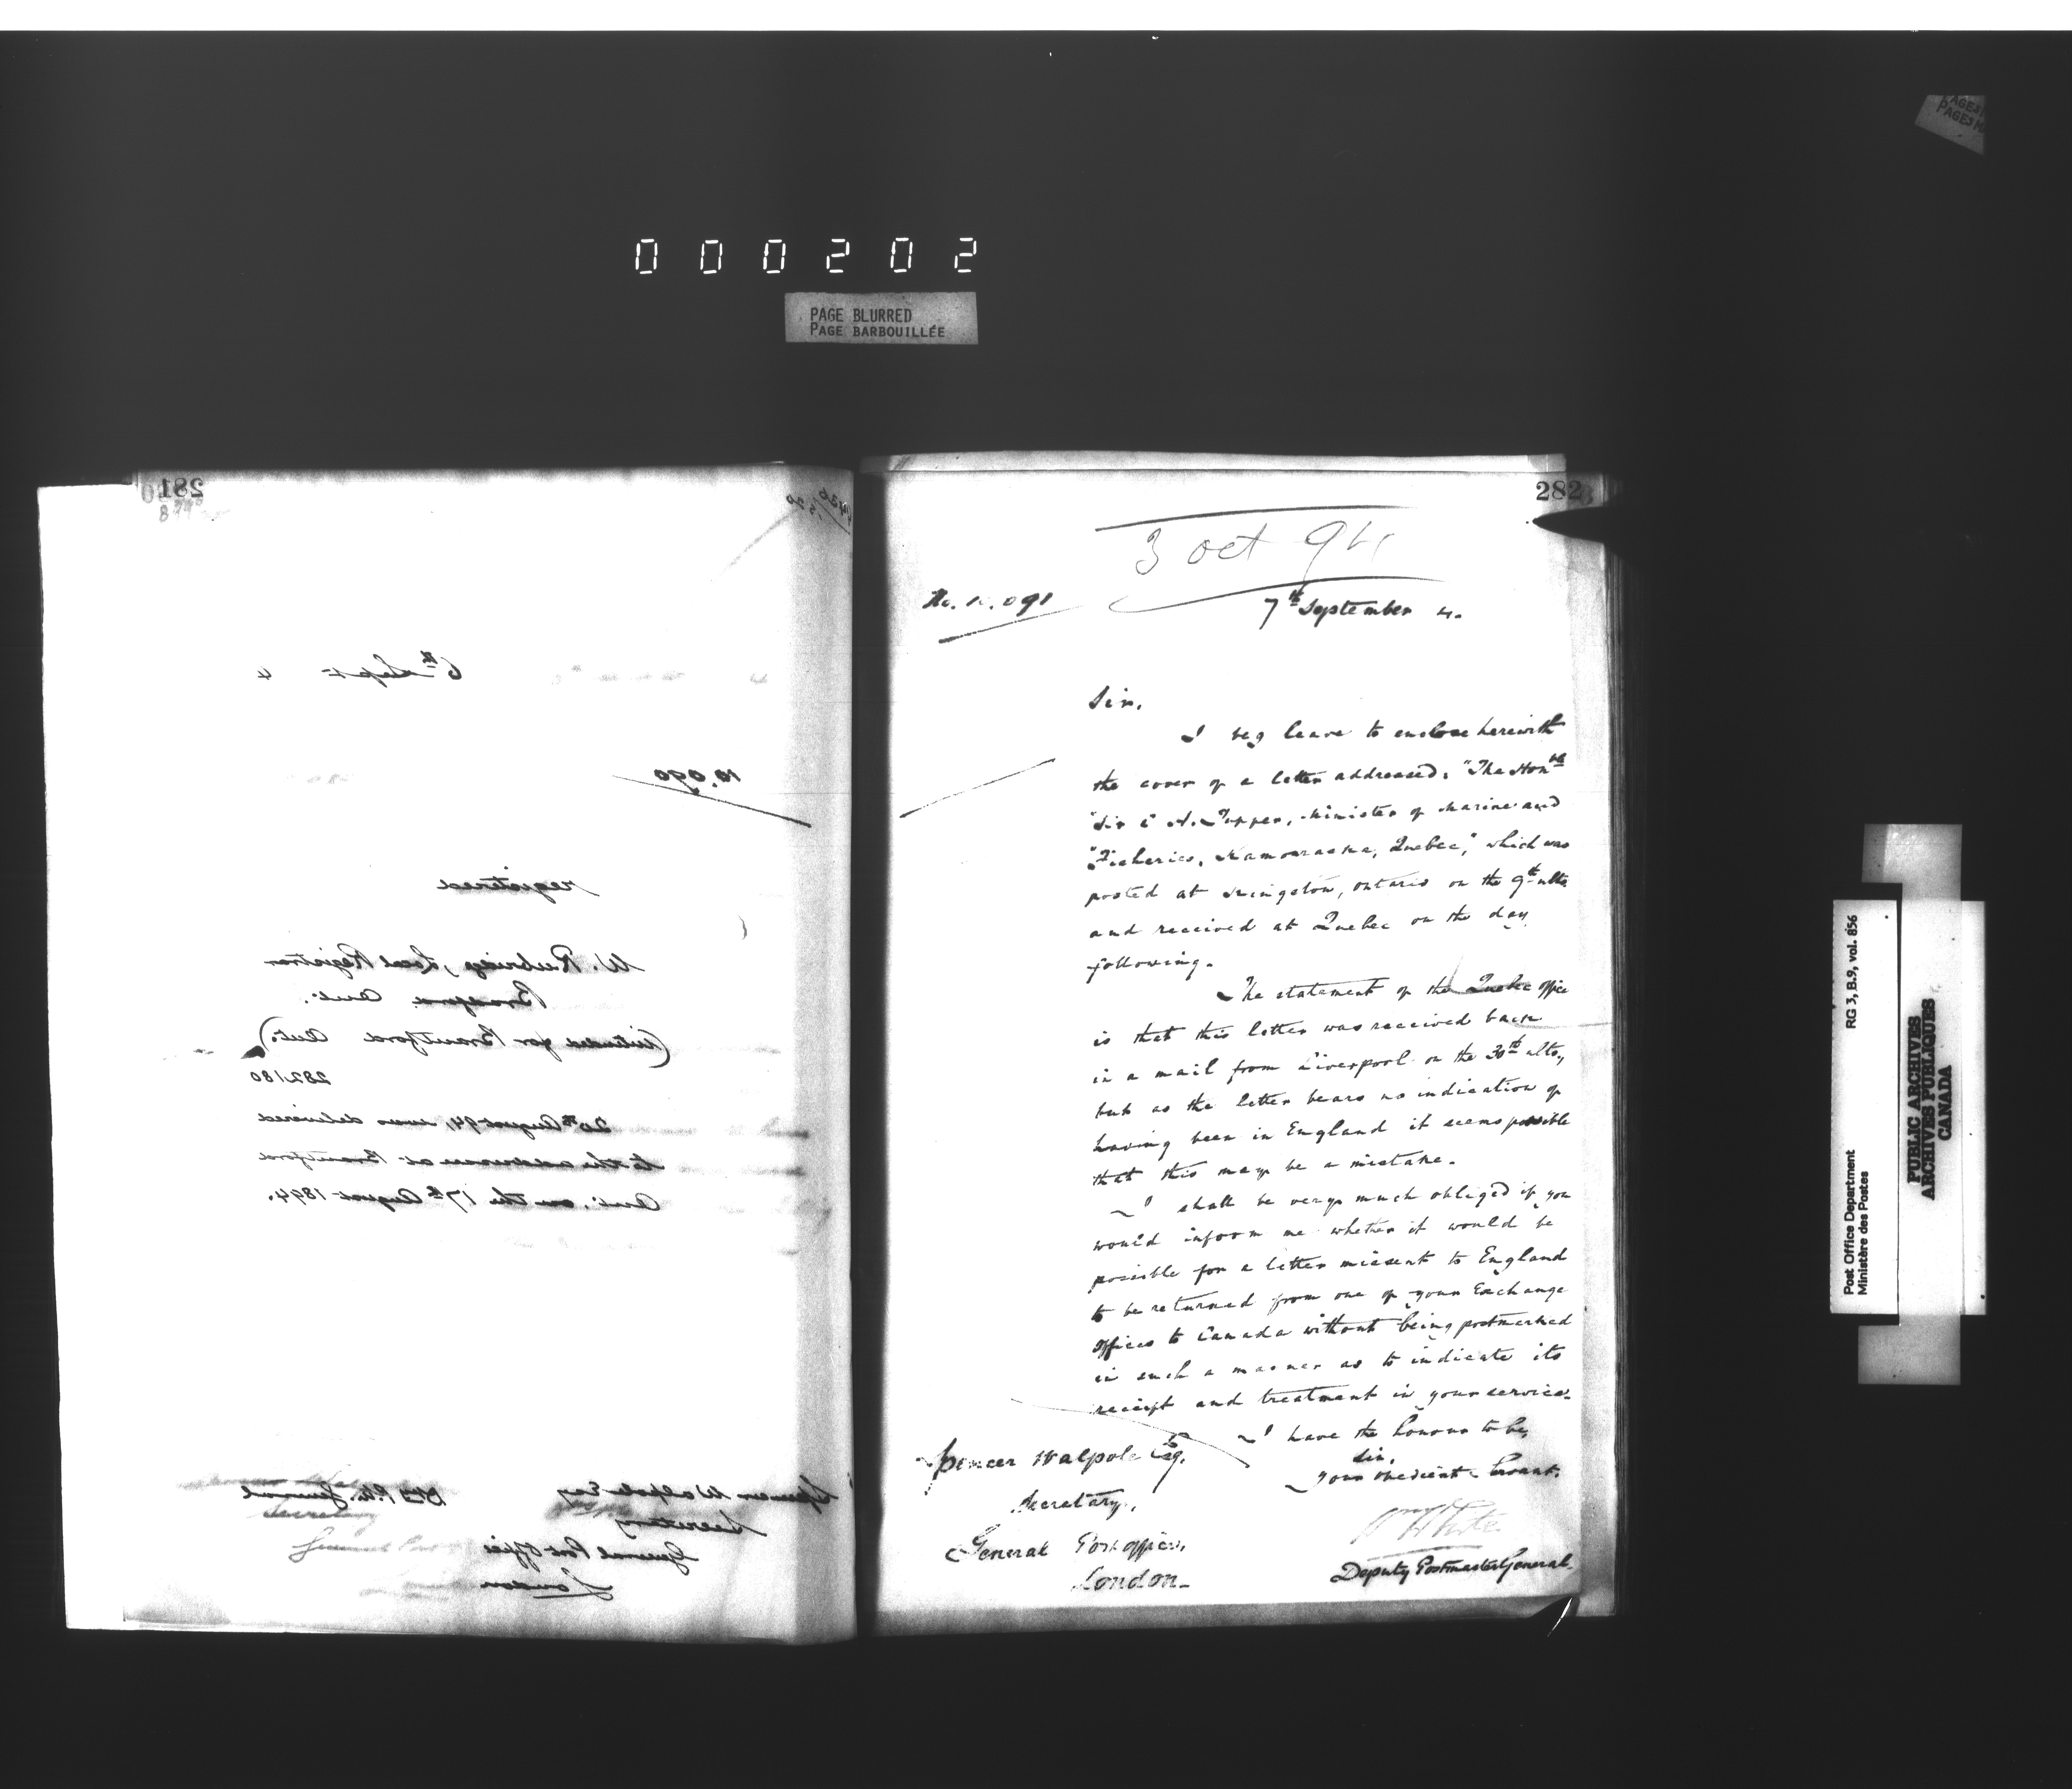 000202
PAGE BLURRED
PAGE BARBOUILLÉE
281
6th Sept 4
10.090
registered
W. Rubridge, Local Registrar
Ont.
(intended for Brantford Ont.)
282180
20th August 94, was delivered
to the addressee at Brantford
Ont. on the 17th August 1894.
Spencer Walpole Esq
Secretary
General Post Office
London
Dty P.M. General
282
3 Oct 94
No. 10.091
7th September 4.
Sir,
I beg leave to enclose herewith
the cover of a letter addressed: "The Honble
"Sir C H. Tupper, Minister of Marine and
"Fisheries, Kamouraska, Quebec," which was
posted at Kingston, Ontario on the 9th ulto
and received at Quebec on the day
following.
The statement of the Quebec Office
is that this letter was received back
in a mail from Liverpool on the 30th ulto,
but as the letter bears no indication of
having been in England it seems possible
that this may be a mistake.
I shall be very much obliged if you
would inform me whether it would be
possible for a letter missent to England
to be returned from one of your Exchange
Offices to Canada without being postmarked
in such a manner as to indicate its
receipt and treatment in your service.
I have the honour to be,
Sir,
Your obedient Servant,
Wm White
Deputy Postmaster General.
Spencer Walpole Esq.
Secretary,
General Post Office,
London
Post Office Department
Ministère des Postes
RG 3, B.9, vol. 856
PUBLIC ARCHIVES
ARCHIVES PUBLIQUES
CANADA